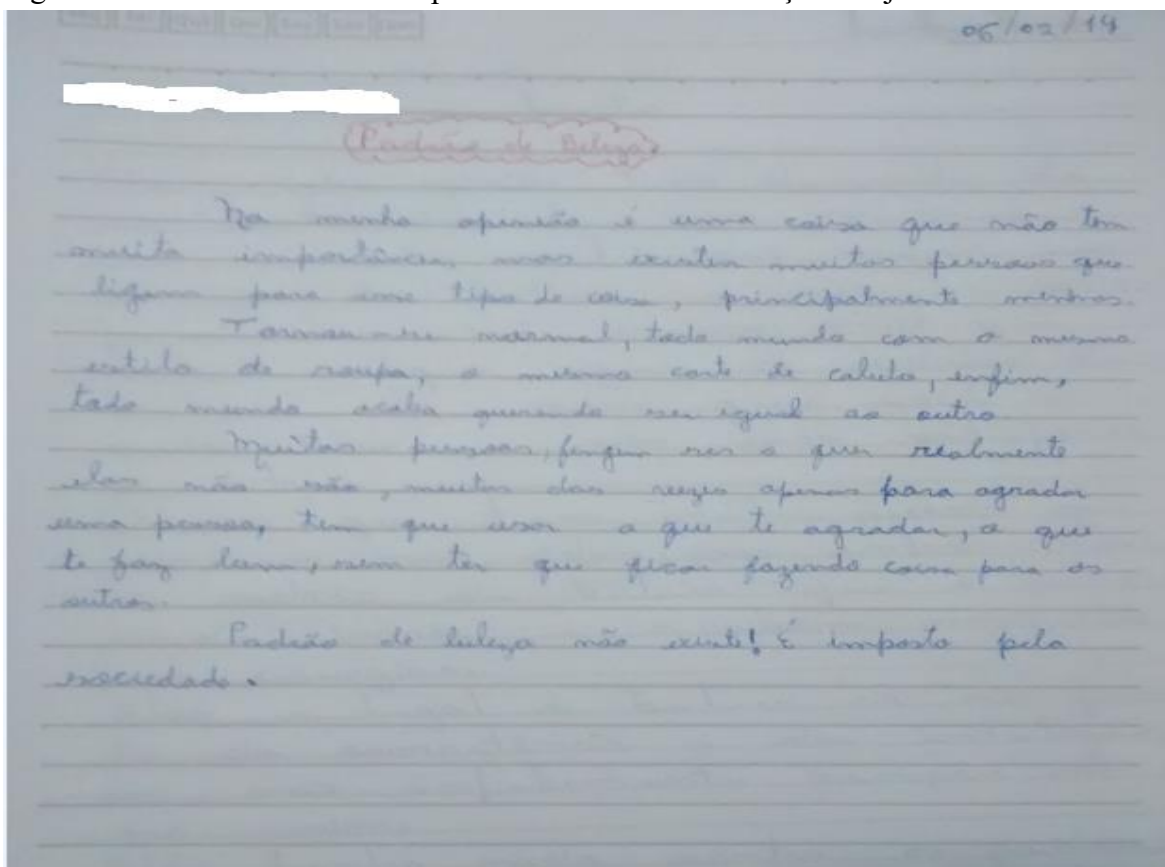 06/02/19
Padrão de Beleza
Na minha opinião é uma coisa que não tem
muita importância, mas existem muitas pessoas que
ligam para esse tipo de coisa, principalmente meninas.
Tornou-se normal, todo mundo com o mesmo
estilo de roupa, o mesmo corte de cabelo, enfim,
todo mundo acaba querendo ser igual ao outro
Muitas pessoas, fingem ser o quer realmente
elas não são, muitas das vezes apenas para agradar
uma pessoa, tem que usar o que te agradar, o que
te faz bem, sem ter que ficar fazendo coisa para os
outros.
Padrão de beleza não existe! É imposto pela
sociedade.